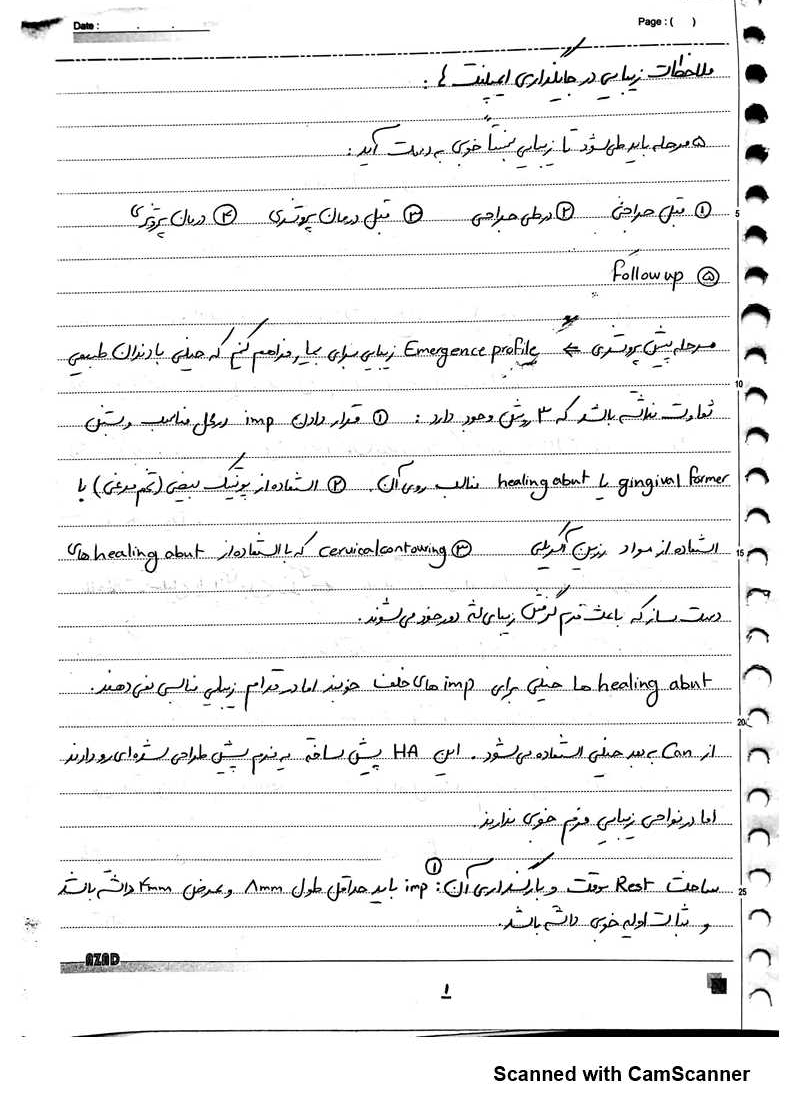 Date : . . Page : ( )
ملاحظات زیبایی در جایگذاری ایمپلنت ها :
۵ مرحله باید طی شود تا زیبایی نسبتاً خوبی به دست آید :
① قبل جراحی ② در طی جراحی ③ قبل درمان پروتزی ④ درمان پروتزی
5
⑤ Follow up
مرحله پیش پروتزی ← Emergence profile زیبایی برای بیمار فراهم کنیم که خیلی با دندان طبیعی
10
تفاوت نداشته باشد که ۳ روش وجود دارد : ① قرار دادن imp در محل مناسب و بستن
gingival former یا healing abut مناسب روی آن. ② استفاده از پونتیک بیضی (تخم مرغی) با
استفاده از مواد رزین آکریلی ③ cervical contouring که با استفاده از healing abut های
15
دست ساز که باعث فرم گرفتن زیبای لثه دور خود می شوند.
healing abut ها خیلی برای imp های خلف خوبند اما در قدام زیبایی مناسبی نمی دهند.
20
از Can به بعد خیلی استفاده می شود. این HA پیش ساخته یه فرم پیش طراحی شده ای رو دارند
اما در نواحی زیبایی فرم خوبی ندارند.
ساخت Rest موقت و بارگذاری آن : ① imp باید حداقل طول ۸mm و عرض ۴mm داشته باشد
25
و ثبات اولیه خوبی داشته باشد.
AZAD
۱
Scanned with CamScanner